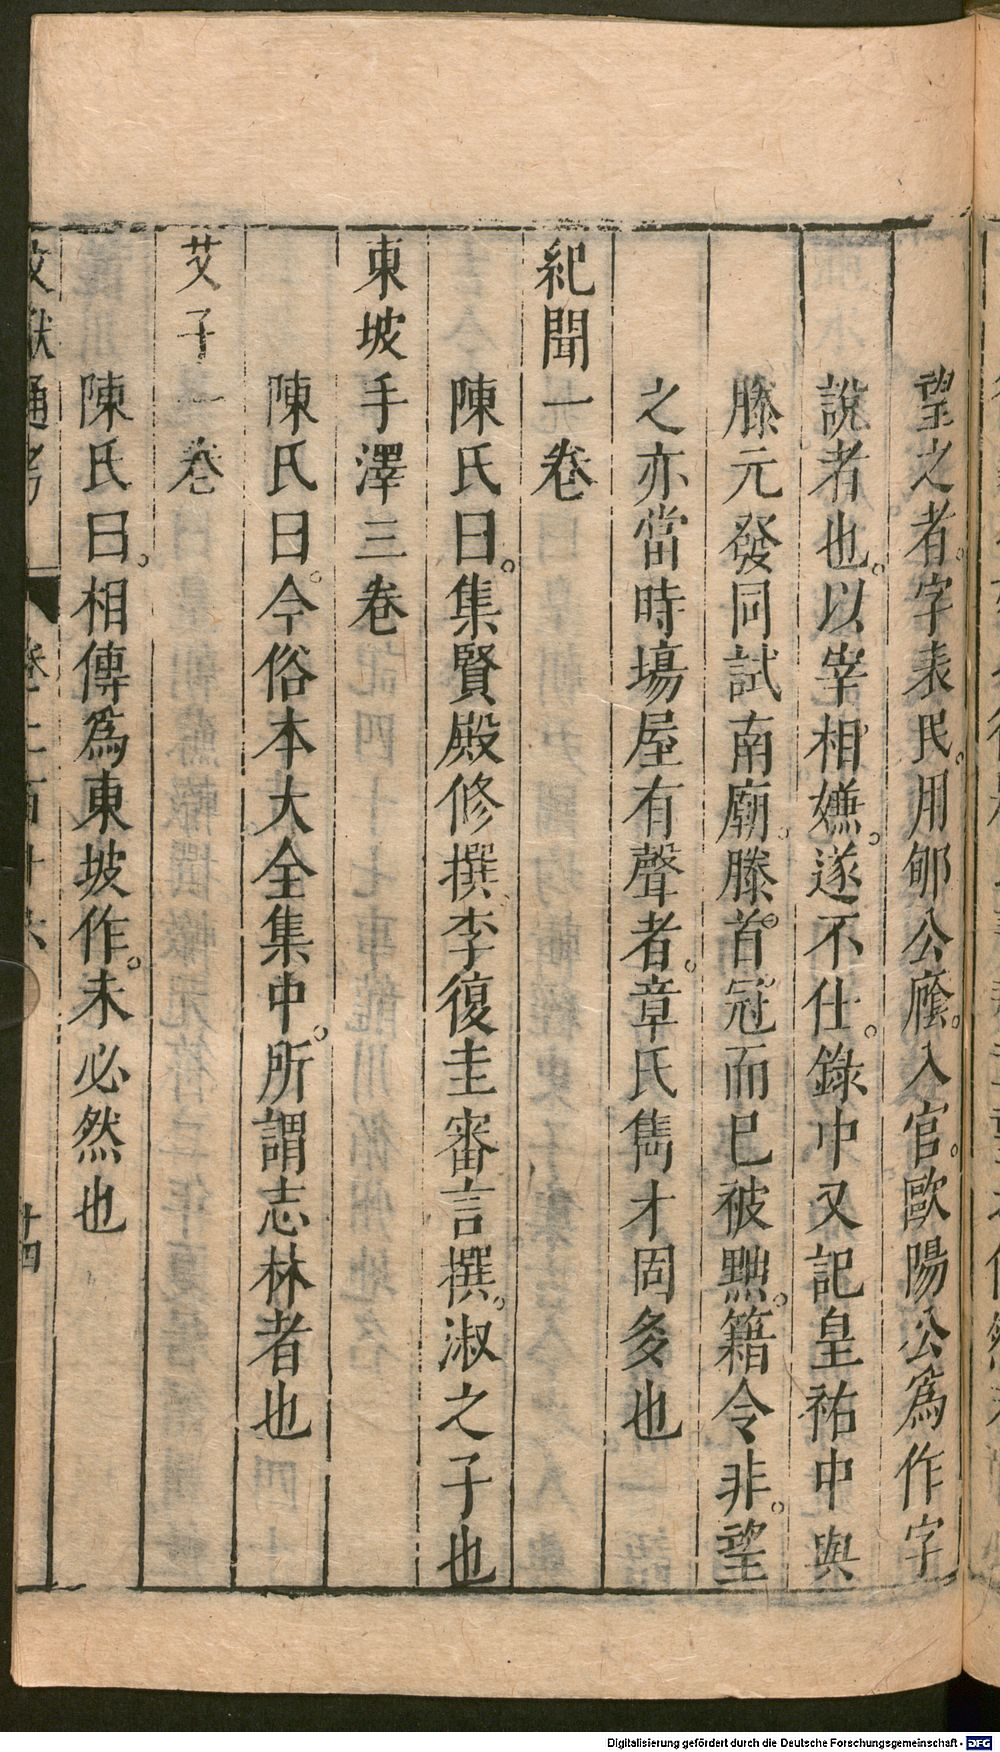 望之者。字表民。用郇公廕。入官。歐陽公爲作字
說者也。以宰相嫌。遂不仕。錄中又記皇祐中與
滕元發同試南廟。滕首冠而已被黜。籍令非。望
之亦當時場屋有聲者。章氏雋才固多也
紀聞一卷
陳氏曰。集賢殿修撰李復圭審言撰。淑之子也
東坡手澤三卷
陳氏曰。今俗本大全集中。所謂志林者也
艾子一卷
陳氏曰。相傳爲東坡作。未必然也
文獻通考 卷二百十六 十四
Digitalisierung gefördert durch die Deutsche Forschungsgemeinschaft - DFG